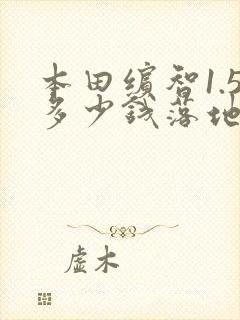 本田缤智1.5
多少钱落地
虚木